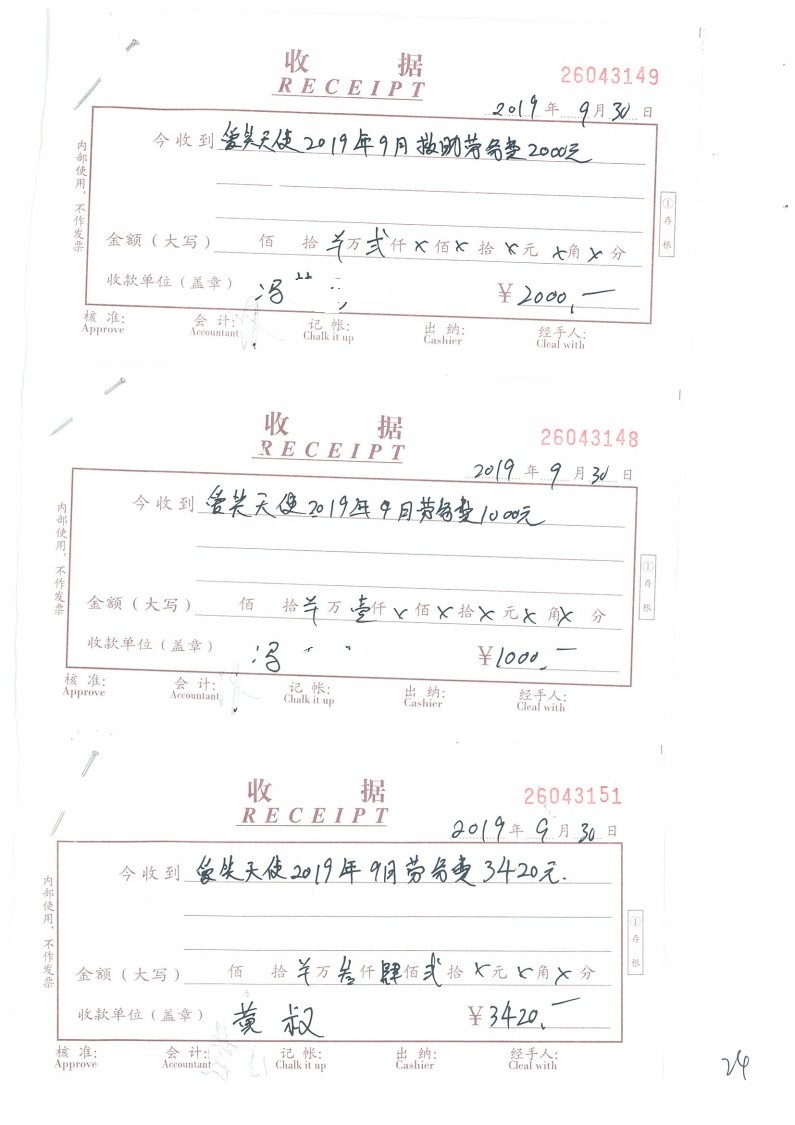 收 据
RECEIPT
26043149
2019年9月30日
今收到 爱笑天使2019年9月救助劳务费2000元
金额（大写） 佰 拾 羊万贰仟×佰×拾×元×角×分
收款单位（盖章） 冯 ¥2000.—
核 准: 会 计: 记 帐: 出 纳: 经手人:
Approve Accountant Chalk it up Cashier Cleal with
内部使用，不作发票
①存根
收 据
RECEIPT
26043148
2019年9月30日
今收到 爱笑天使2019年9月劳务费1000元
金额（大写） 佰 拾 羊万壹仟×佰×拾×元×角×分
收款单位（盖章） 冯 ¥1000.—
核 准: 会 计: 记 帐: 出 纳: 经手人:
Approve Accountant Chalk it up Cashier Cleal with
内部使用，不作发票
①存根
收 据
RECEIPT
26043151
2019年9月30日
今收到 爱笑天使2019年9月劳务费3420元.
金额（大写） 佰 拾 羊万叁仟肆佰贰拾×元×角×分
收款单位（盖章） 黄叔 ¥3420.—
核 准: 会 计: 记 帐: 出 纳: 经手人:
Approve Accountant Chalk it up Cashier Cleal with
内部使用，不作发票
①存根
24